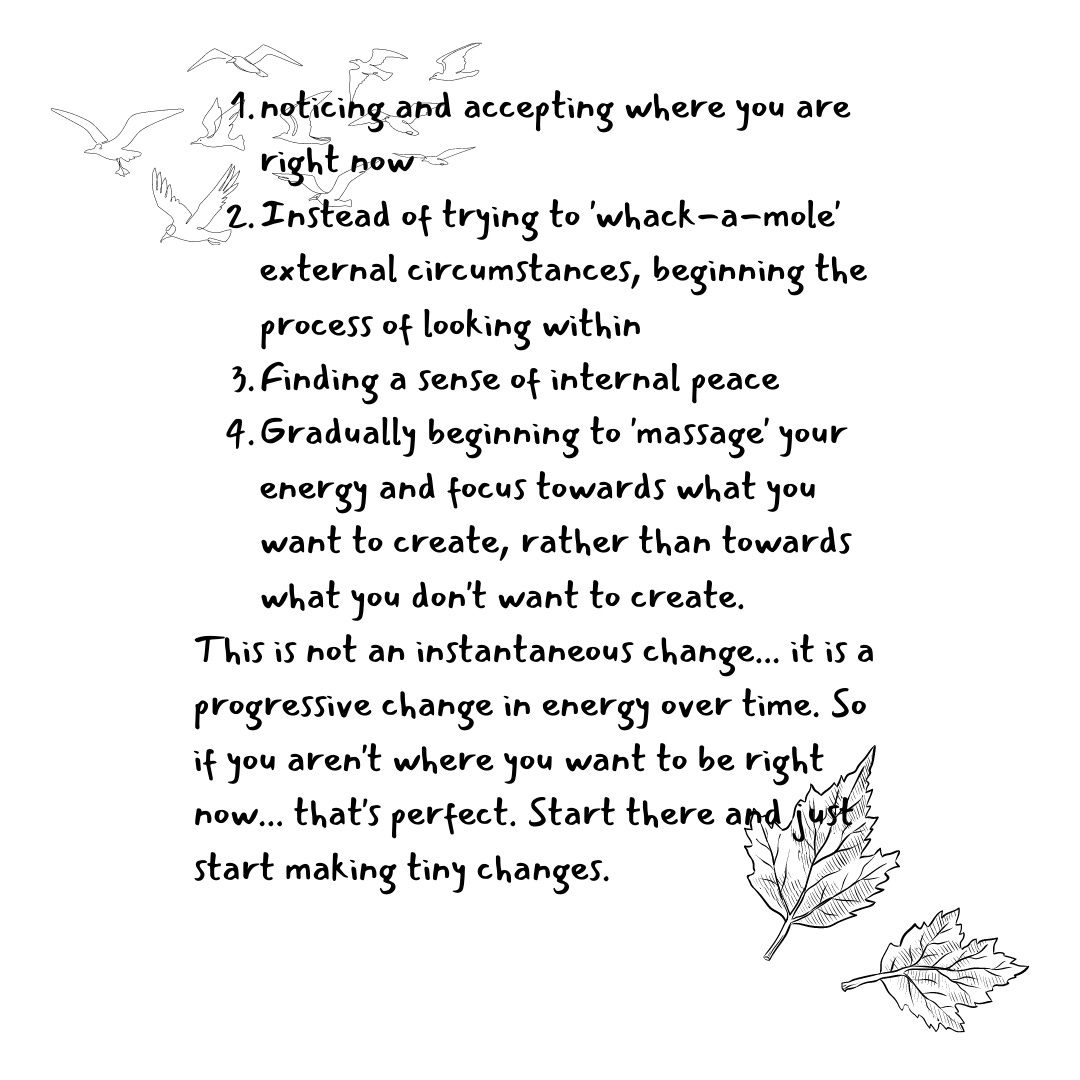 1. noticing and accepting where you are
right now
2. Instead of trying to 'whack-a-mole'
external circumstances, beginning the
process of looking within
3. Finding a sense of internal peace
4. Gradually beginning to 'massage' your
energy and focus towards what you
want to create, rather than towards
what you don't want to create.
This is not an instantaneous change... it is a
progressive change in energy over time. So
if you aren't where you want to be right
now... that's perfect. Start there and just
start making tiny changes.